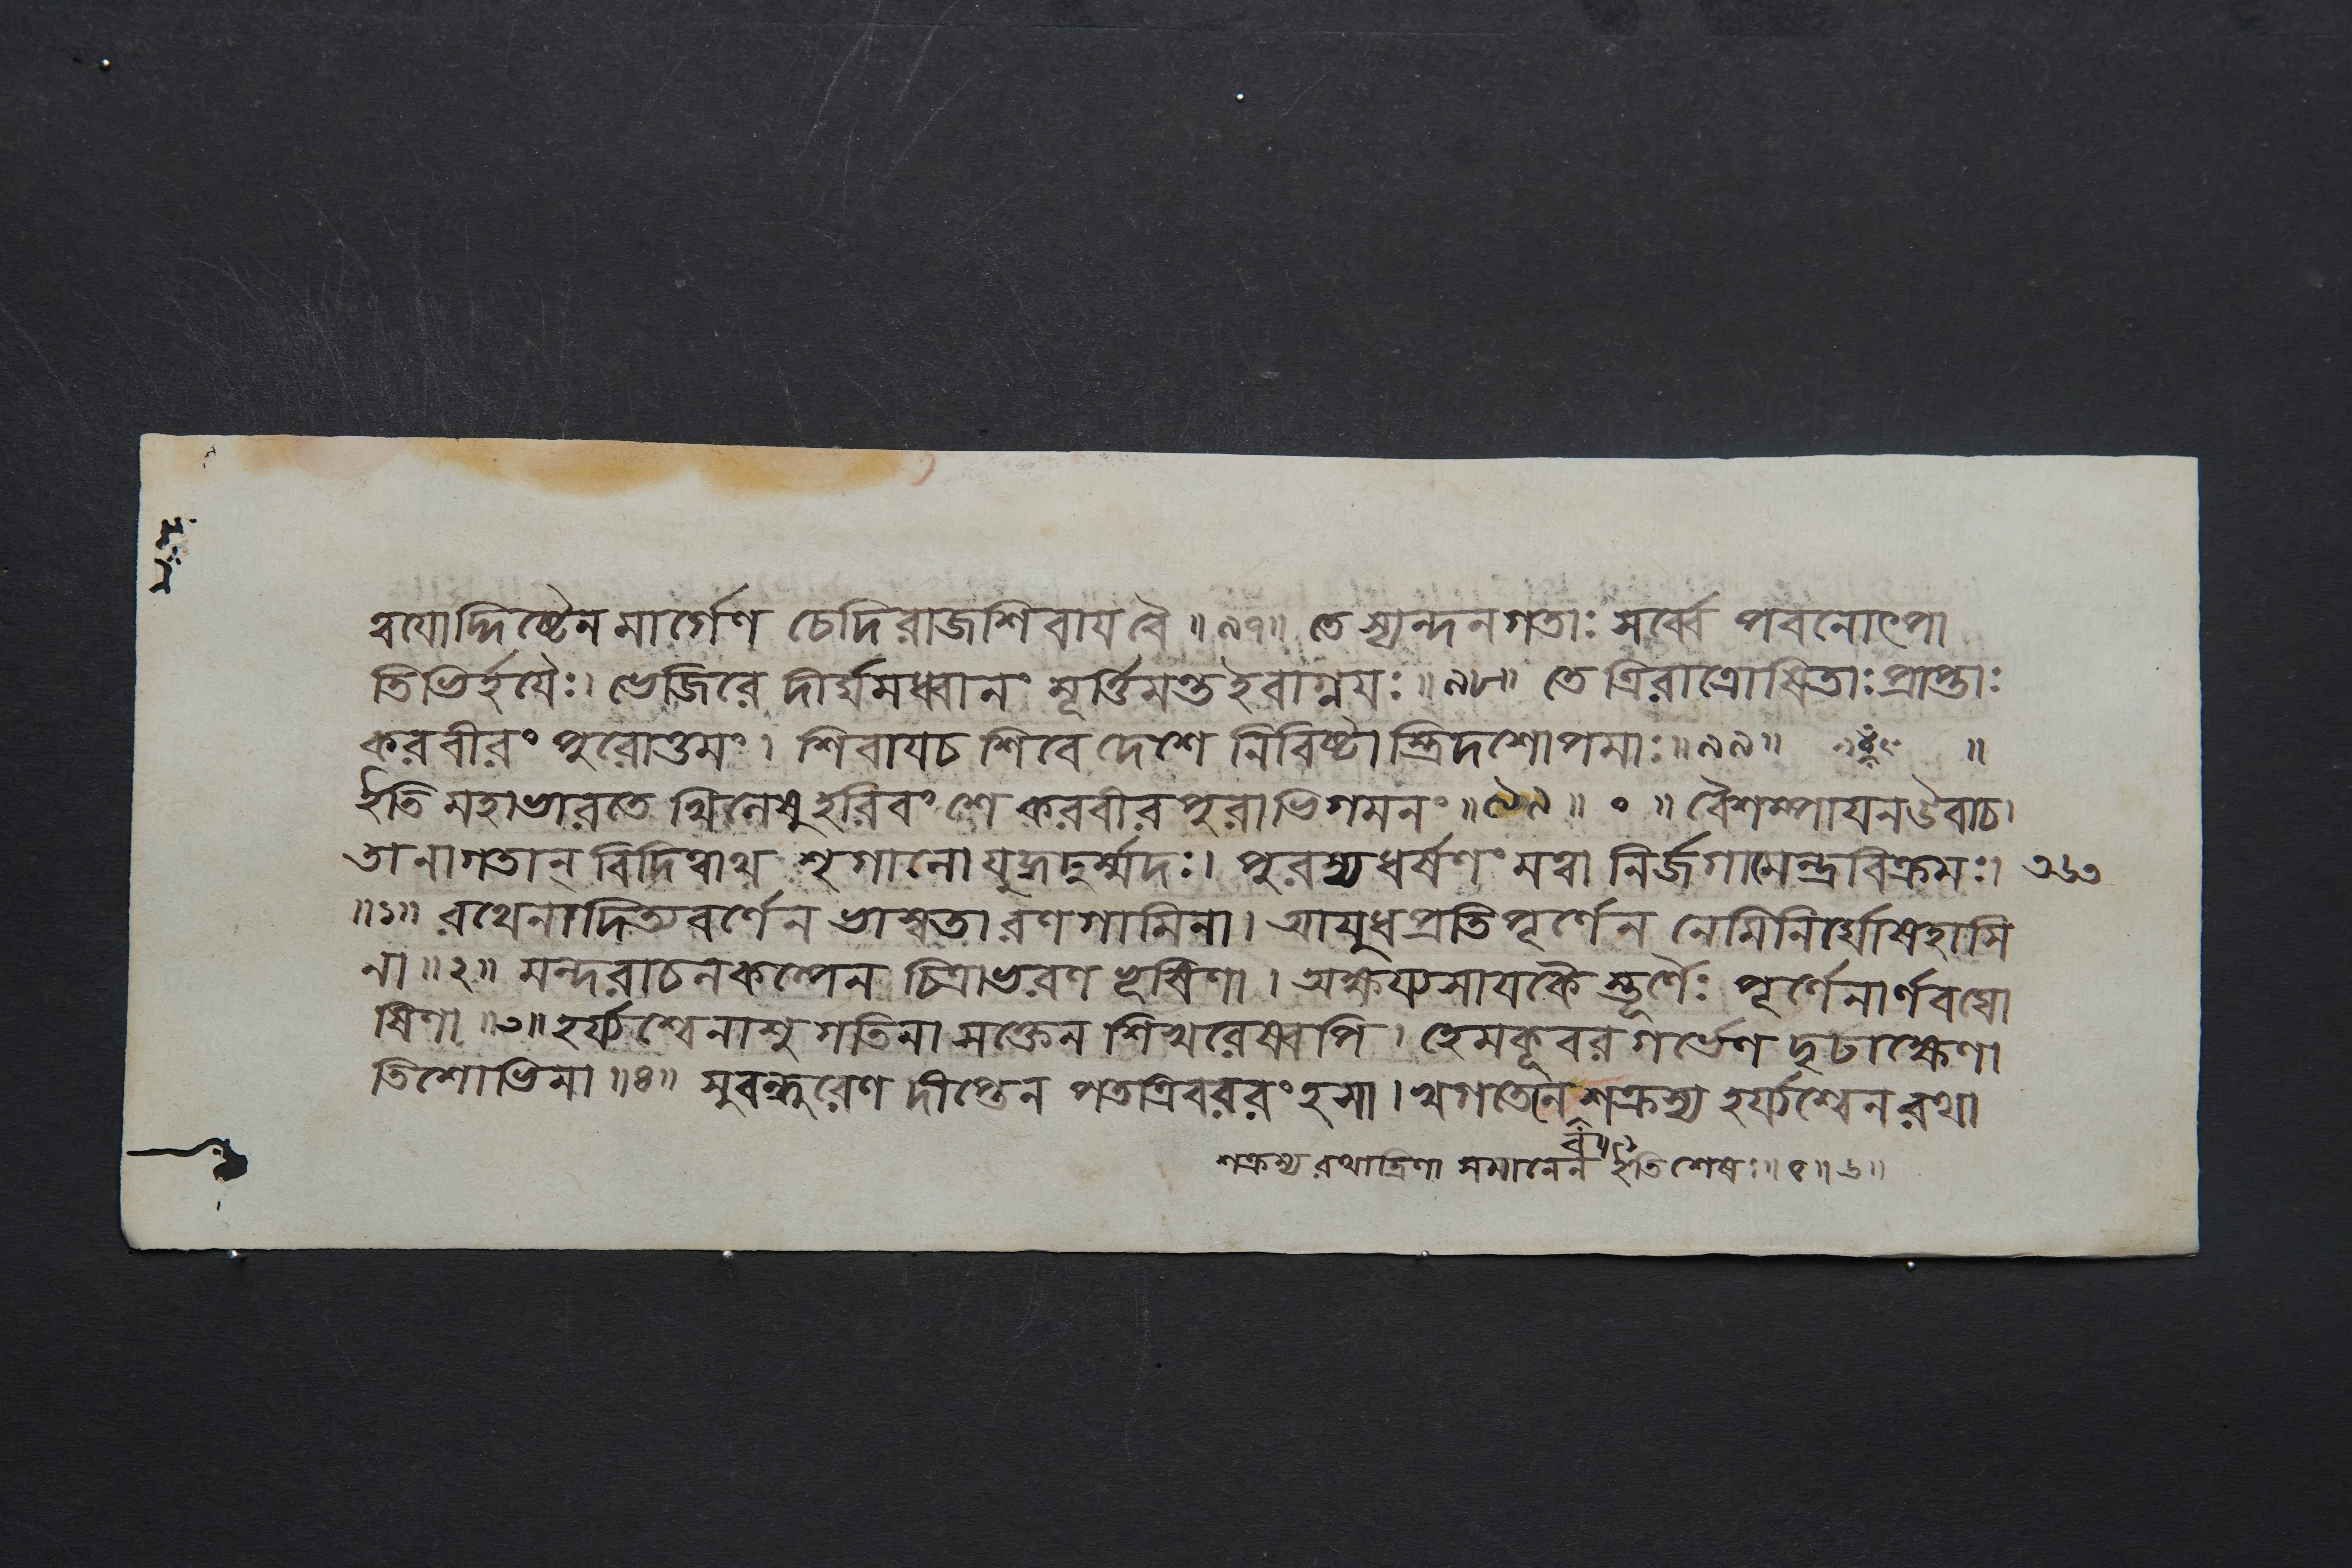 ত্বযোদ্দিষ্টেন মার্গেণ চেদিরাজশিবাযবৈ ॥ ৯৭॥ তে স্যন্দনগতাঃ সর্ব্বে পবনোৎপা
তিভির্হযৈঃ। ভেজিরে দীর্ঘমধ্বানং মূর্ত্তিমন্তইবাগ্নযঃ ॥ ৯৮॥ তে ত্রিরাত্রোষিতাঃ প্রাপ্তাঃ
করবীরং পুরোত্তমং। শিবাযচ শিবে দেশে নিবিষ্টাস্ত্রিদশোপমাঃ ॥ ৯৯॥ ॥
ইতি মহাভারতে খিলেষু হরিবংশে করবীরপুরাভিগমনং ॥ ৯৯ ॥ ০ ॥ বৈশম্পাযনউবাচ।
তানাগতান্ বিদিত্বাথ শৃগালো যুদ্ধদুর্ম্মদঃ। পুরস্যধর্ষণং মত্বা নির্জগামেন্দ্রবিক্রমঃ। ৩৬৩
॥১॥ রথেনাদিত্যবর্ণেন ভাস্বতা রণগামিনা। আযুধপ্রতিপূর্ণেন নেমিনির্ঘোষহাসি
না ॥ ২॥ মন্দরাচলকল্পেন চিত্রাভরণভূষিণা। অক্ষয্যসাযকৈস্তূর্ণৈঃ পূর্ণেনার্ণবঘো
ষিণা ॥৩॥ হর্য্যশ্বেনাশুগতিনা সক্তেন শিখরেষ্বপি। হেমকূবরগর্ভেণ দৃঢাক্ষেণা
তিশোভিনা ॥ ৪॥ সুবন্ধুরেণ দীপ্তেন পতত্রিবররংহসা। খগতেনে শক্রস্য হর্য্যশ্বেন রথা
শক্রস্য রথাদ্রিণা সমানেন ইতি শেষঃ॥